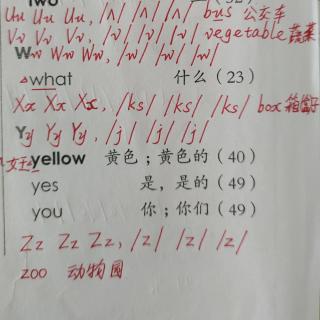 Uu Uu Uu, /ʌ/ /ʌ/ /ʌ/ bus 公交车
Vv Vv Vv, /v/ /v/ /v/ vegetable 蔬菜
Ww Ww Ww, /w/ /w/ /w/
△what 什么（23）
Xx Xx Xx, /ks/ /ks/ /ks/ box 箱盒子
Yy Yy Yy, /j/ /j/ /j/
yellow 黄色；黄色的（40）
yes 是，是的（49）
you 你；你们（49）
Zz Zz Zz, /z/ /z/ /z/
zoo 动物园